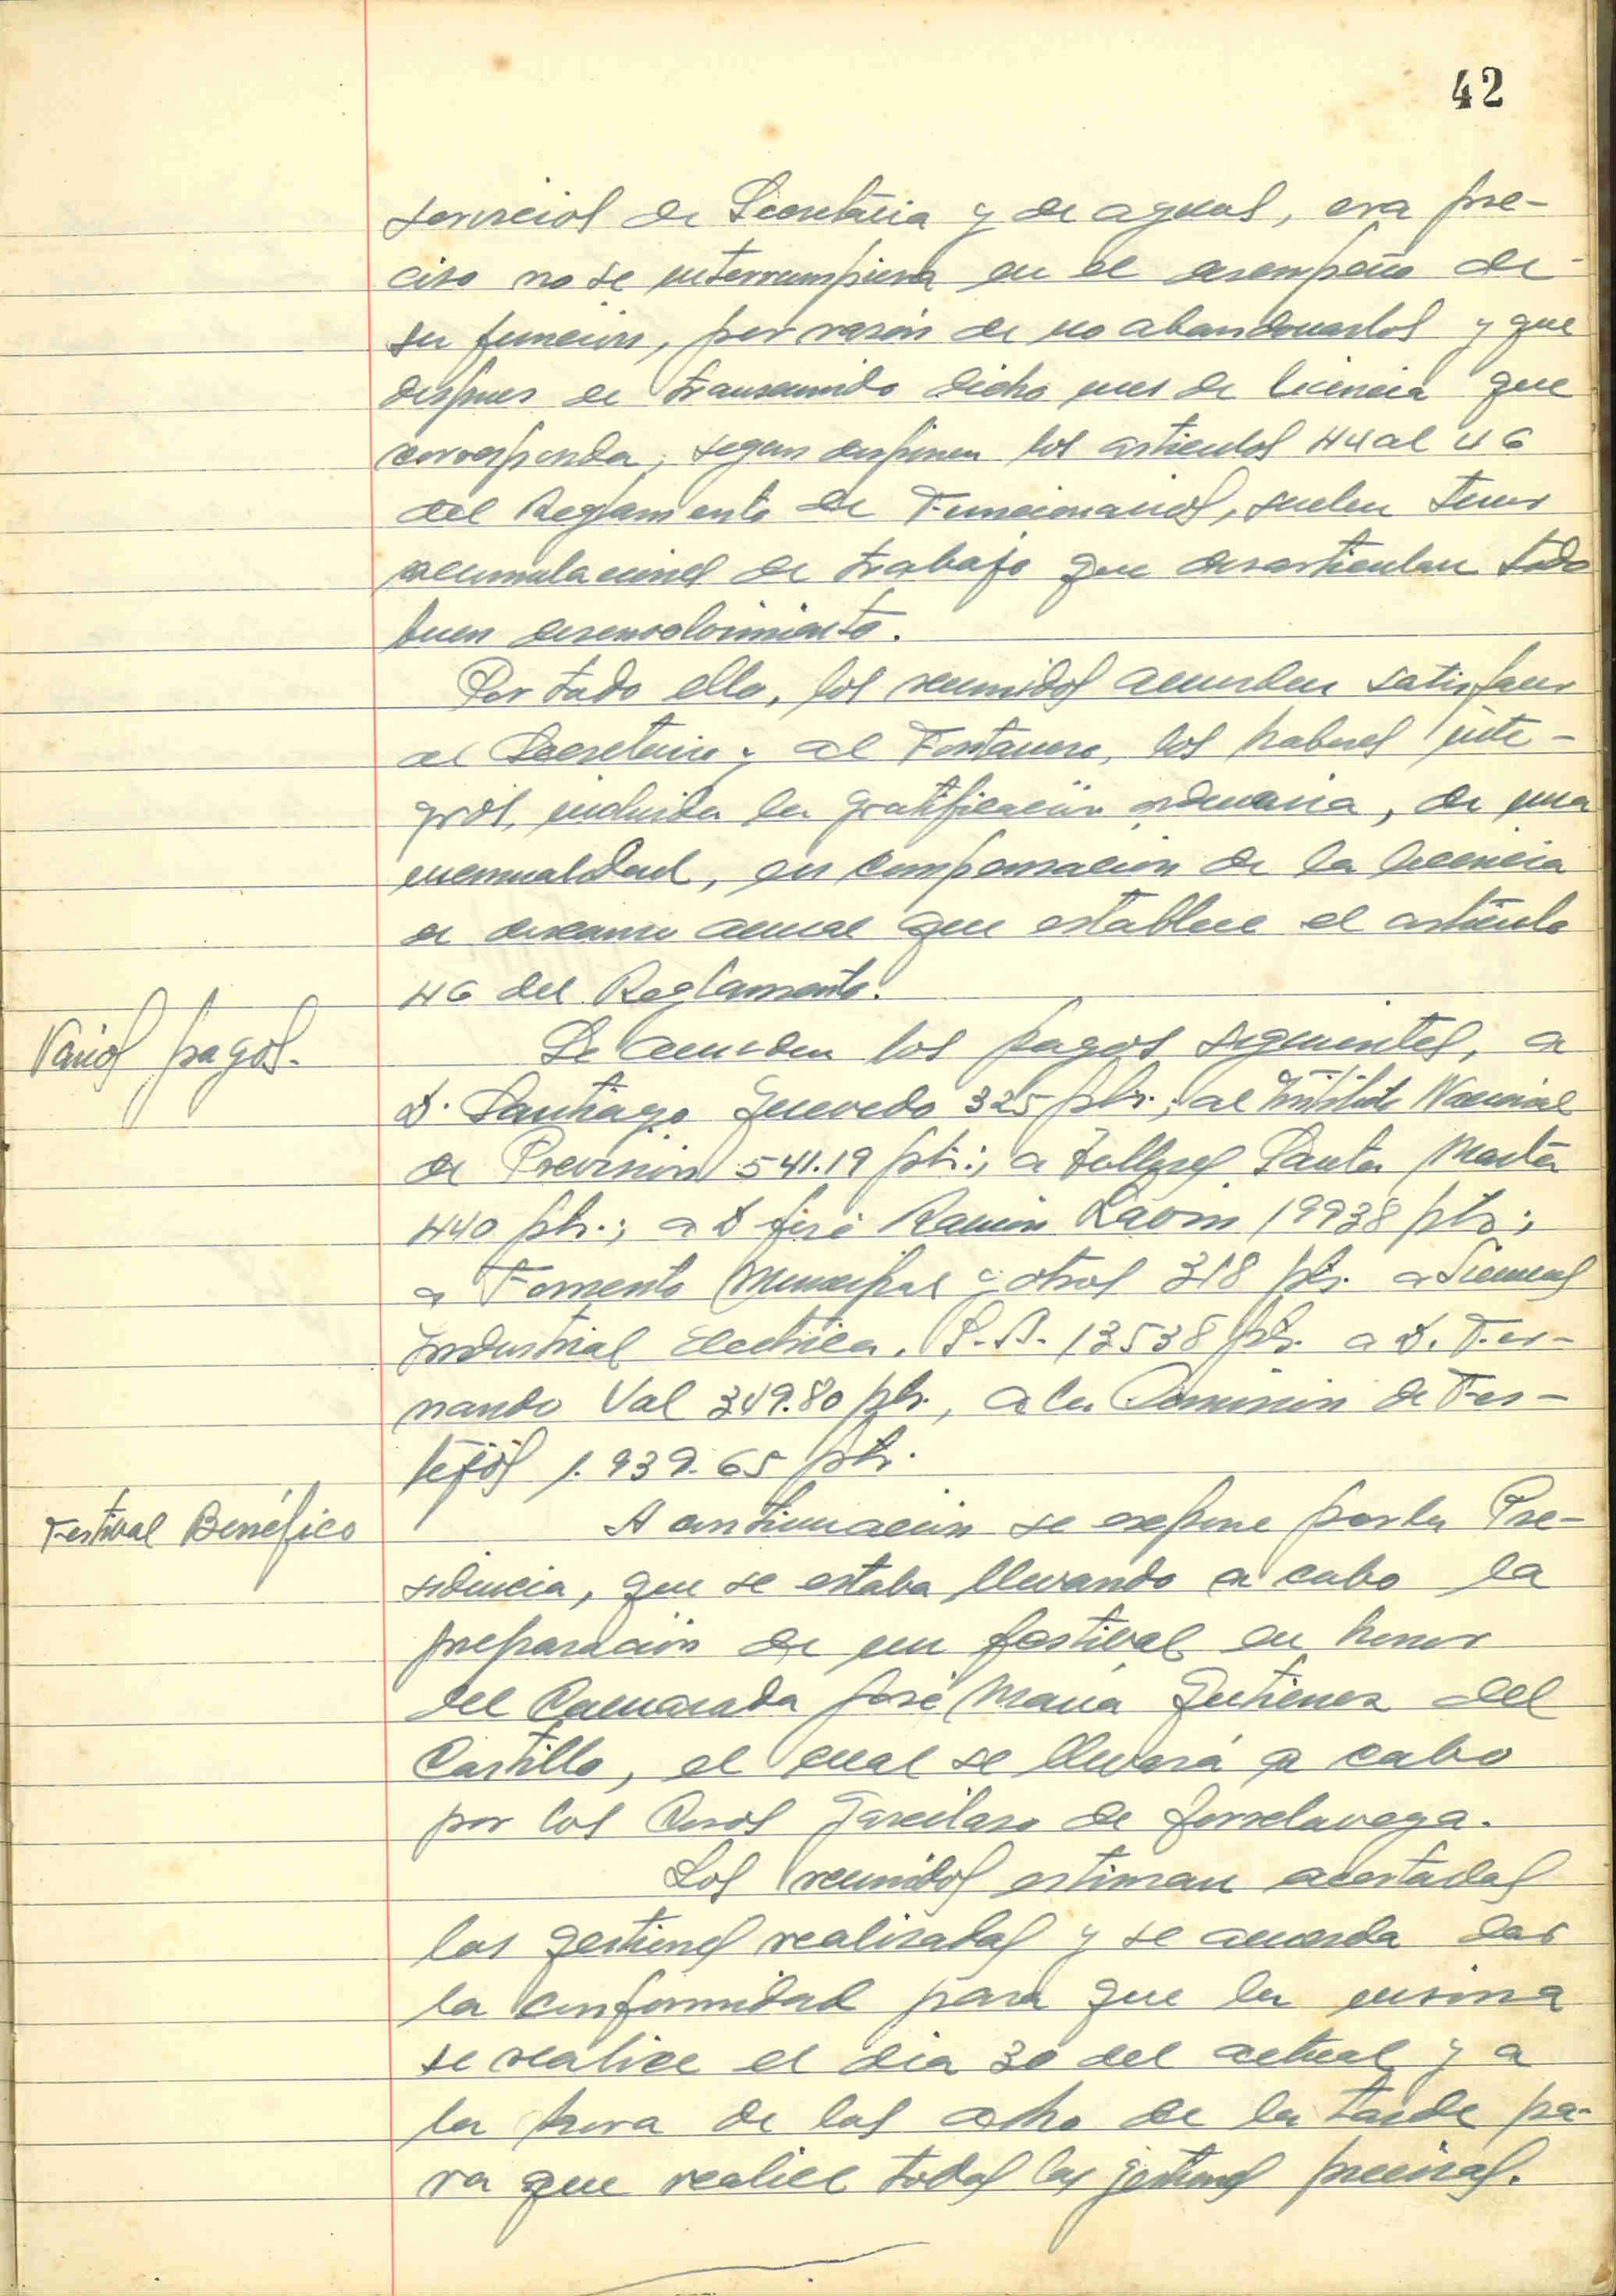 42
servicios de Secretaria y de aguas, era pre-
ciso no se interrumpiera en el desempeño de
su funcion, por razón de no abandonarlos y que
despues de transcurrido dicho mes de licencia que
corresponda, segun disponen los articulos 44 al 46
del Reglamento de Funcionarios, suelen tener
acumulaciones de trabajo que desarticulan todo
buen desenvolvimiento.
Por todo ello, los reunidos acuerdan satisfacer
al Secretario y al Fontanero, los haberes inte-
gros, incluida la gratificación ordinaria, de una
mensualidad, en compensacion de la licencia
o descanso anual que establece el articulo
46 del Reglamento.
Varios pagos.
Se acuerdan los pagos siguientes, a
D. Santiago Quevedo 325 pts.; al Instituto Nacional
de Prevision 541.19 pts.; a Talleres Santa Marta
440 pts.; a D José Ramon Lavin 19938 pts.;
a Fomento Municipal y otros 318 pts. a Siemens
Industrial Electrica, S.A. 13538 pts. a D. Fer-
nando Val 349.80 pts., a la Comision de Fes-
tejos 1.939.65 pts.
Festival Benéfico
A continuación se expone por la Pre-
sidencia, que se estaba llevando a cabo la
preparación de un festival en honor
del Camarada José Maria Gutierrez del
Castillo, el cual se llevará a cabo
por los Coros Garcilaso de Torrelavega.
Los reunidos estiman acertadas
las gestiones realizadas y se acuerda dar
la conformidad para que la misma
se realice el dia 30 del actual y a
la hora de las ocho de la tarde pa-
ra que realice todas las gestiones precisas.